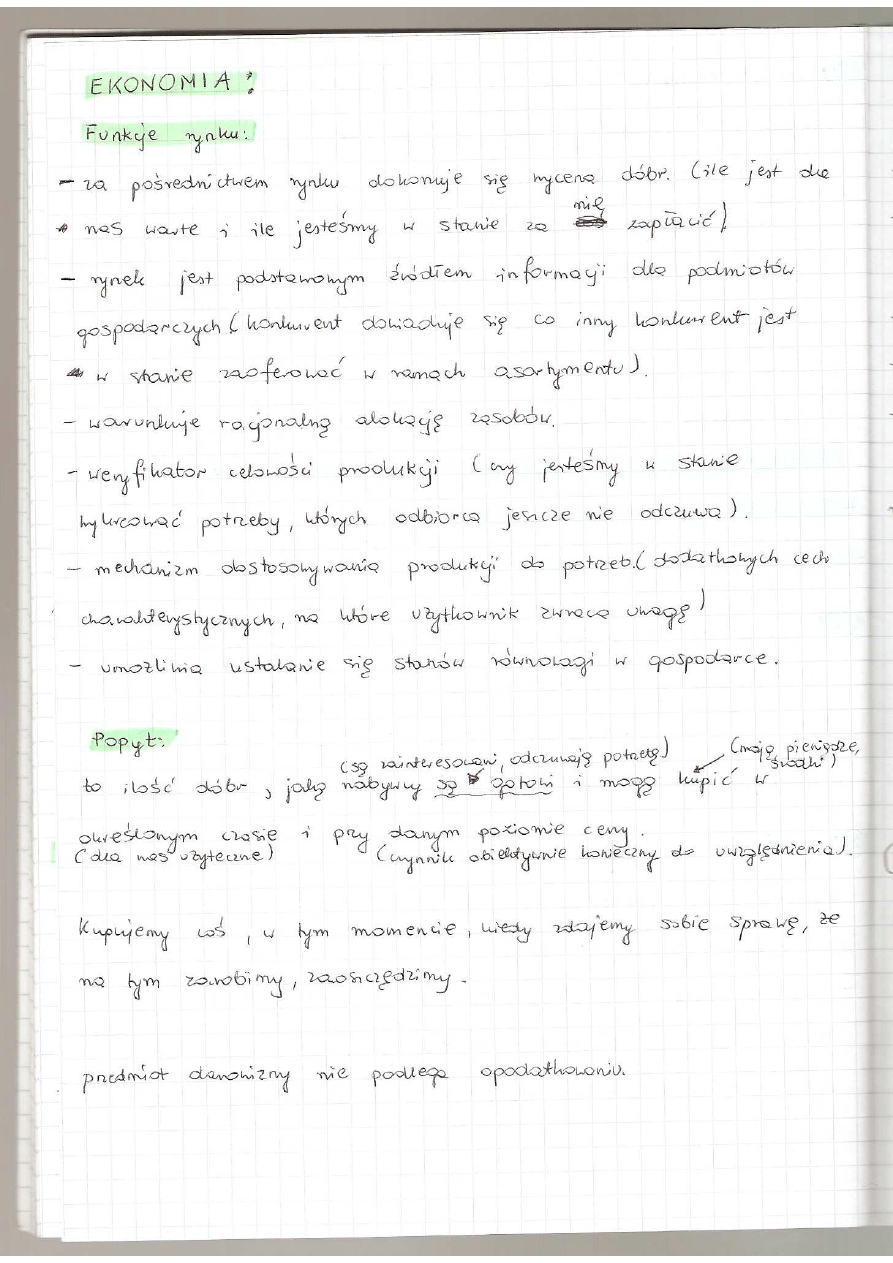 EKONOMIA:
Funkcje rynku:
- za pośrednictwem rynku dokonuje się wycena dóbr. (ile jest dla
nas warte i ile jesteśmy w stanie za nię zapłacić)
- rynek jest podstawowym źródłem informacji dla podmiotów
gospodarczych (konkurent dowiaduje się co inny konkurent jest
w stanie zaoferować w ramach asortymentu).
- warunkuje racjonalną alokację zasobów.
- weryfikator celowości produkcji (czy jesteśmy w stanie
wykreować potrzeby, których odbiorca jeszcze nie odczuwa).
- mechanizm dostosowywania produkcji do potrzeb. (dodatkowych cech
charakterystycznych, na które użytkownik zwraca uwagę)
- umożliwia ustalanie się stanów równowagi w gospodarce.
Popyt:
(są zainteresowani, odczuwają potrzebę) (mają pieniądze,
środki)
to ilość dóbr, jaką nabywcy są gotowi i mogą kupić w
określonym czasie i przy danym poziomie ceny.
(dla nas użyteczne) (czynnik obiektywnie konieczny do uwzględnienia).
Kupujemy coś, w tym momencie, kiedy zdajemy sobie sprawę, że
na tym zarobimy, zaoszczędzimy.
przedmiot darowizny nie podlega opodatkowaniu.